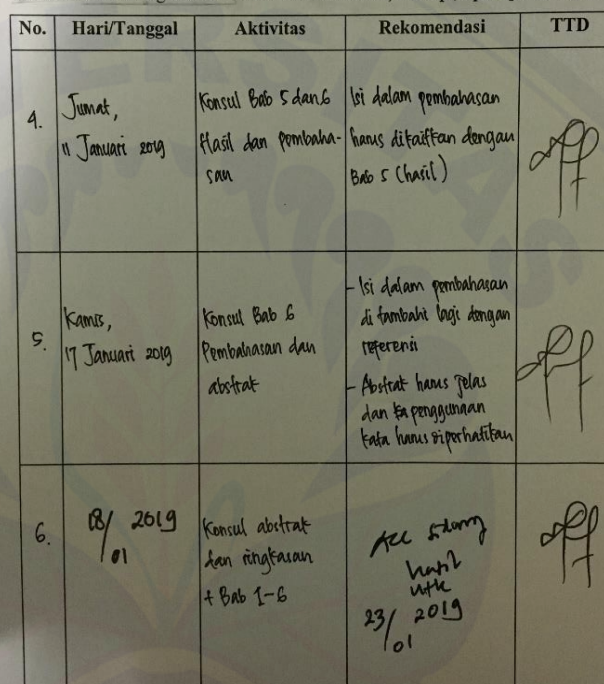 No. Hari/Tanggal Aktivitas Rekomendasi TTD
4.
Jumat,
11 Januari 2019
Konsul Bab 5 dan 6
Hasil dan pembaha-
san
Isi dalam pembahasan
harus dikaitkan dengan
Bab 5 (hasil)
5.
Kamis,
17 Januari 2019
Konsul Bab 6
Pembahasan dan
abstrak
- Isi dalam pembahasan
di tambahi lagi dengan
referensi
- Abstrak harus jelas
dan penggunaan
kata harus diperhatikan
6.
18/01 2019
Konsul abstrak
dan ringkasan
+ Bab 1-6
Acc sidang
hasil
utk
23/01 2019